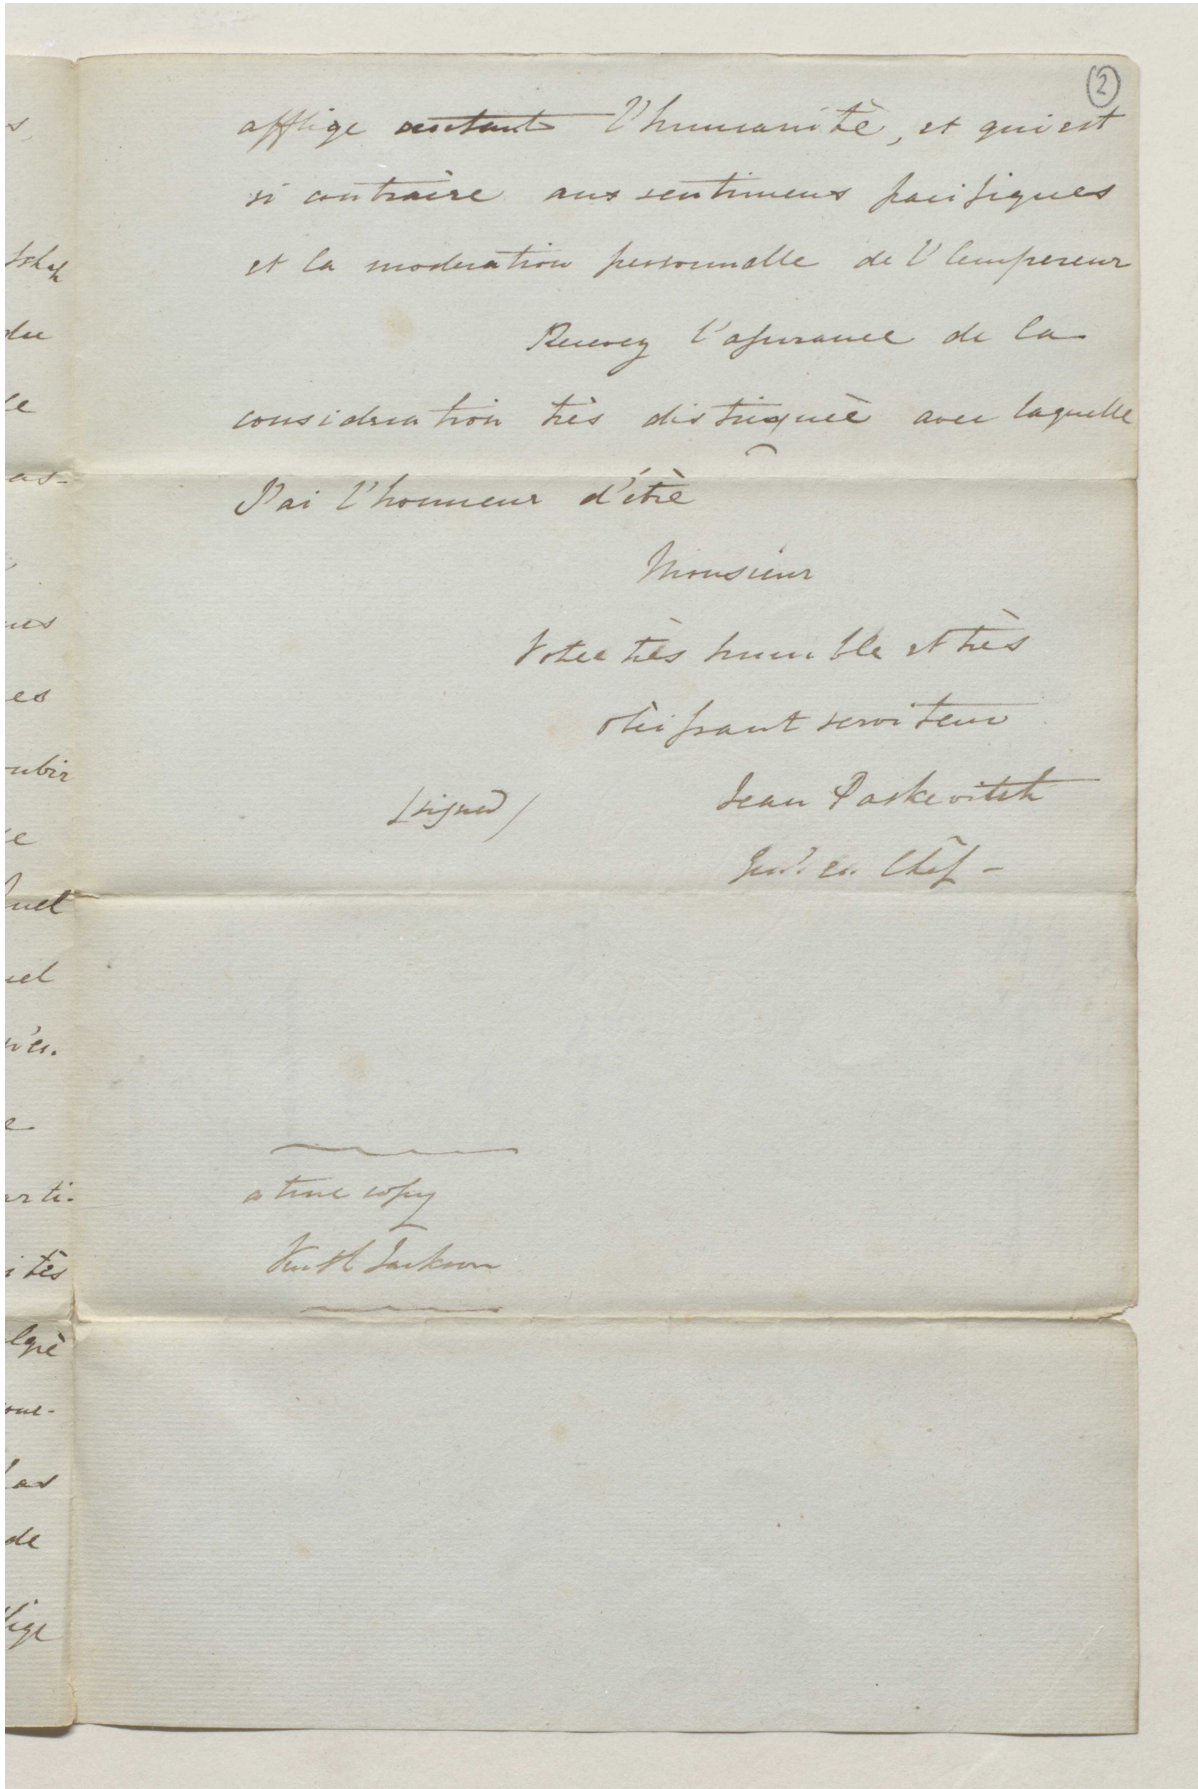 2
afflige autant l'humanitè, et qui est
si contraire aux sentimens pacifiques
et la moderation personnelle de l'Empereur
Recevez l'assurance de la
consideration très distinquèe avec laquelle
J'ai l'honneur d'étre
Monsieur
Votre très humble et très
obeissant serviteur
(signed) Jean Paskevitch
Genl. en Chef -
a true copy
Keith Jackson
s,
du
le
as-
ues
es
ubir
ce
quel
uel
e
arti-
itès
lgrè
oue-
las
de
lige